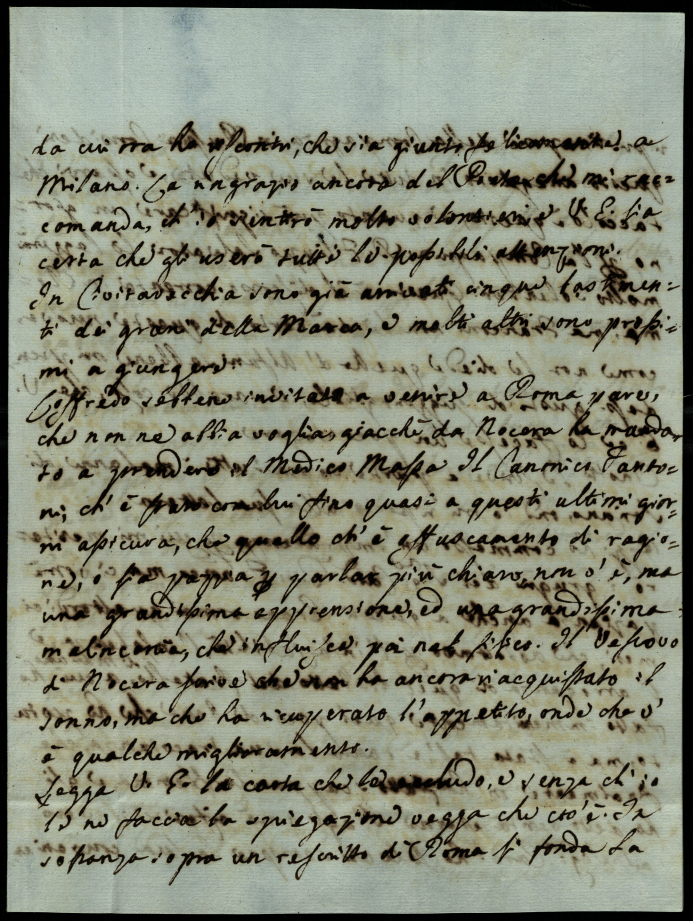 da cui ora ho riscontri, che sia giunto felicemente a
Milano. La ringrazio ancora del Poeta che mi rac=
comanda, ch' io sentirò molto volontieri e V. E. sia
certa che gli userò tutte le possibili attenzioni.
In Civitavecchia sono già arrivati cinque bastimen=
ti di grani della Marca, e molti altri sono prossi=
mi a giungere
Goffredo sebbene invitato a venire a Roma pare,
che non ne abbia voglia, giacchè da Nocera ha manda
to a prendere il Medico Massa Il Canonico Fanto=
ni, ch' è stato con lui fino quasi a questi ultimi gior=
ni assicura, che quello ch' è offuscamento di ragio=
ne, o sia pazzia p parlar più chiaro, non v' è, ma
una grandissima apprensione, ed una grandissima
malinconia, che influisce poi nel fisico. Il Vescovo
di Nocera scrive che non ha ancora riacquistato il
sonno, ma che ha ricuperato l' appetito, onde che v'
è qualche miglioramento.
Legga V. E. la carta che le accludo, e senza ch' io
le ne faccia la spiegazione vegga che cos' è. In
sostanza sopra un rescritto di Roma si fonda la